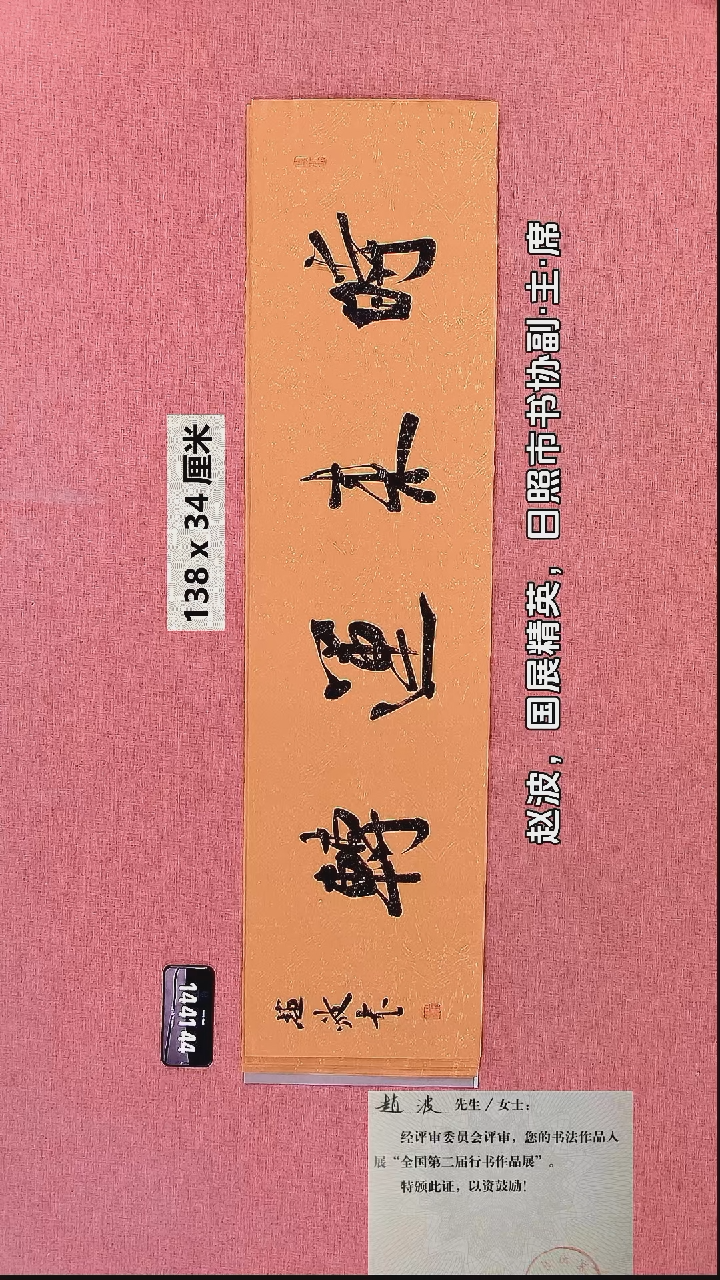 138 x 34 厘米
時来運轉
趙波书
赵波，国展精英，日照市书协副·主·席
趙 波 先生／女士：
经评审委员会评审，您的书法作品入
展“全国第二届行书作品展”。
特颁此证，以资鼓励！